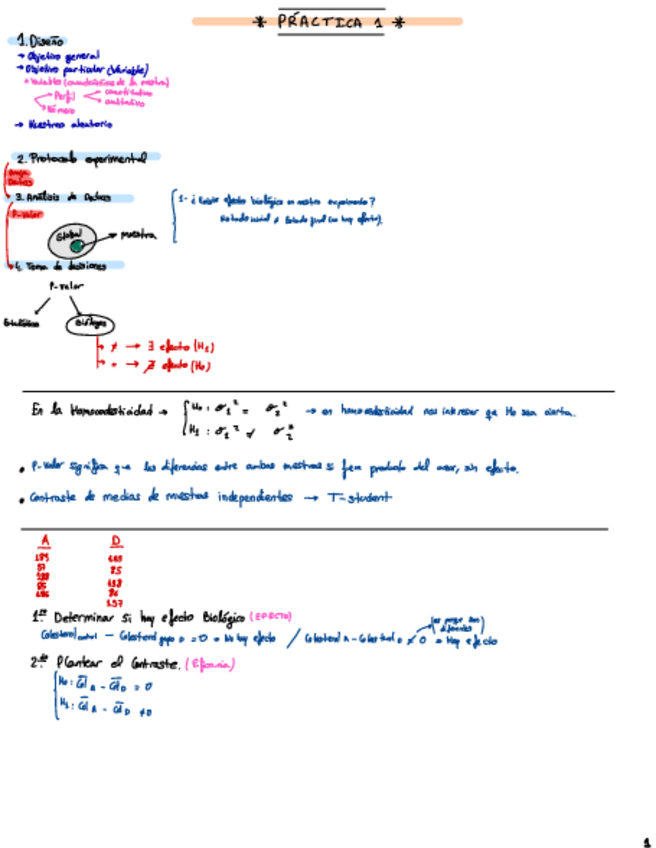 * PRÁCTICA 1 *
1. Diseño
→ Objetivo general
→ Objetivo particular (Variable)
* Variable (características de la muestra)
Perfil
cuantitativo
cualitativo
Número
→ Muestreo aleatorio
2. Protocolo experimental
Datos
3. Análisis de Datos
P-valor
Global → muestra
1- ¿Existe efecto biológico en nuestro experimento?
Estado inicial ≠ Estado final (no hay efecto).
4. Toma de decisiones
P-valor
Estadístico
Biológico
≠ → ∃ efecto (H₁)
= → ∄ efecto (H₀)
En la Homocedasticidad → H₀: σ₁² = σ₂² → en homocedasticidad nos interesa que H₀ sea cierta.
H₁: σ₁² ≠ σ₂²
• P-valor significa que las diferencias entre ambas muestras si fuera producto del azar, sin efecto.
• Contraste de medias de muestras independientes → T-student
A D
1º Determinar si hay efecto Biológico (EFECTO)
Colesterol control - Colesterol grupo D = 0 = No hay efecto / Colesterol A - Colesterol D ≠ 0 = Hay efecto
2º Plantear el Contraste. (Eficacia)
H₀: Col A - Col D = 0
H₁: Col A - Col D ≠ 0
1